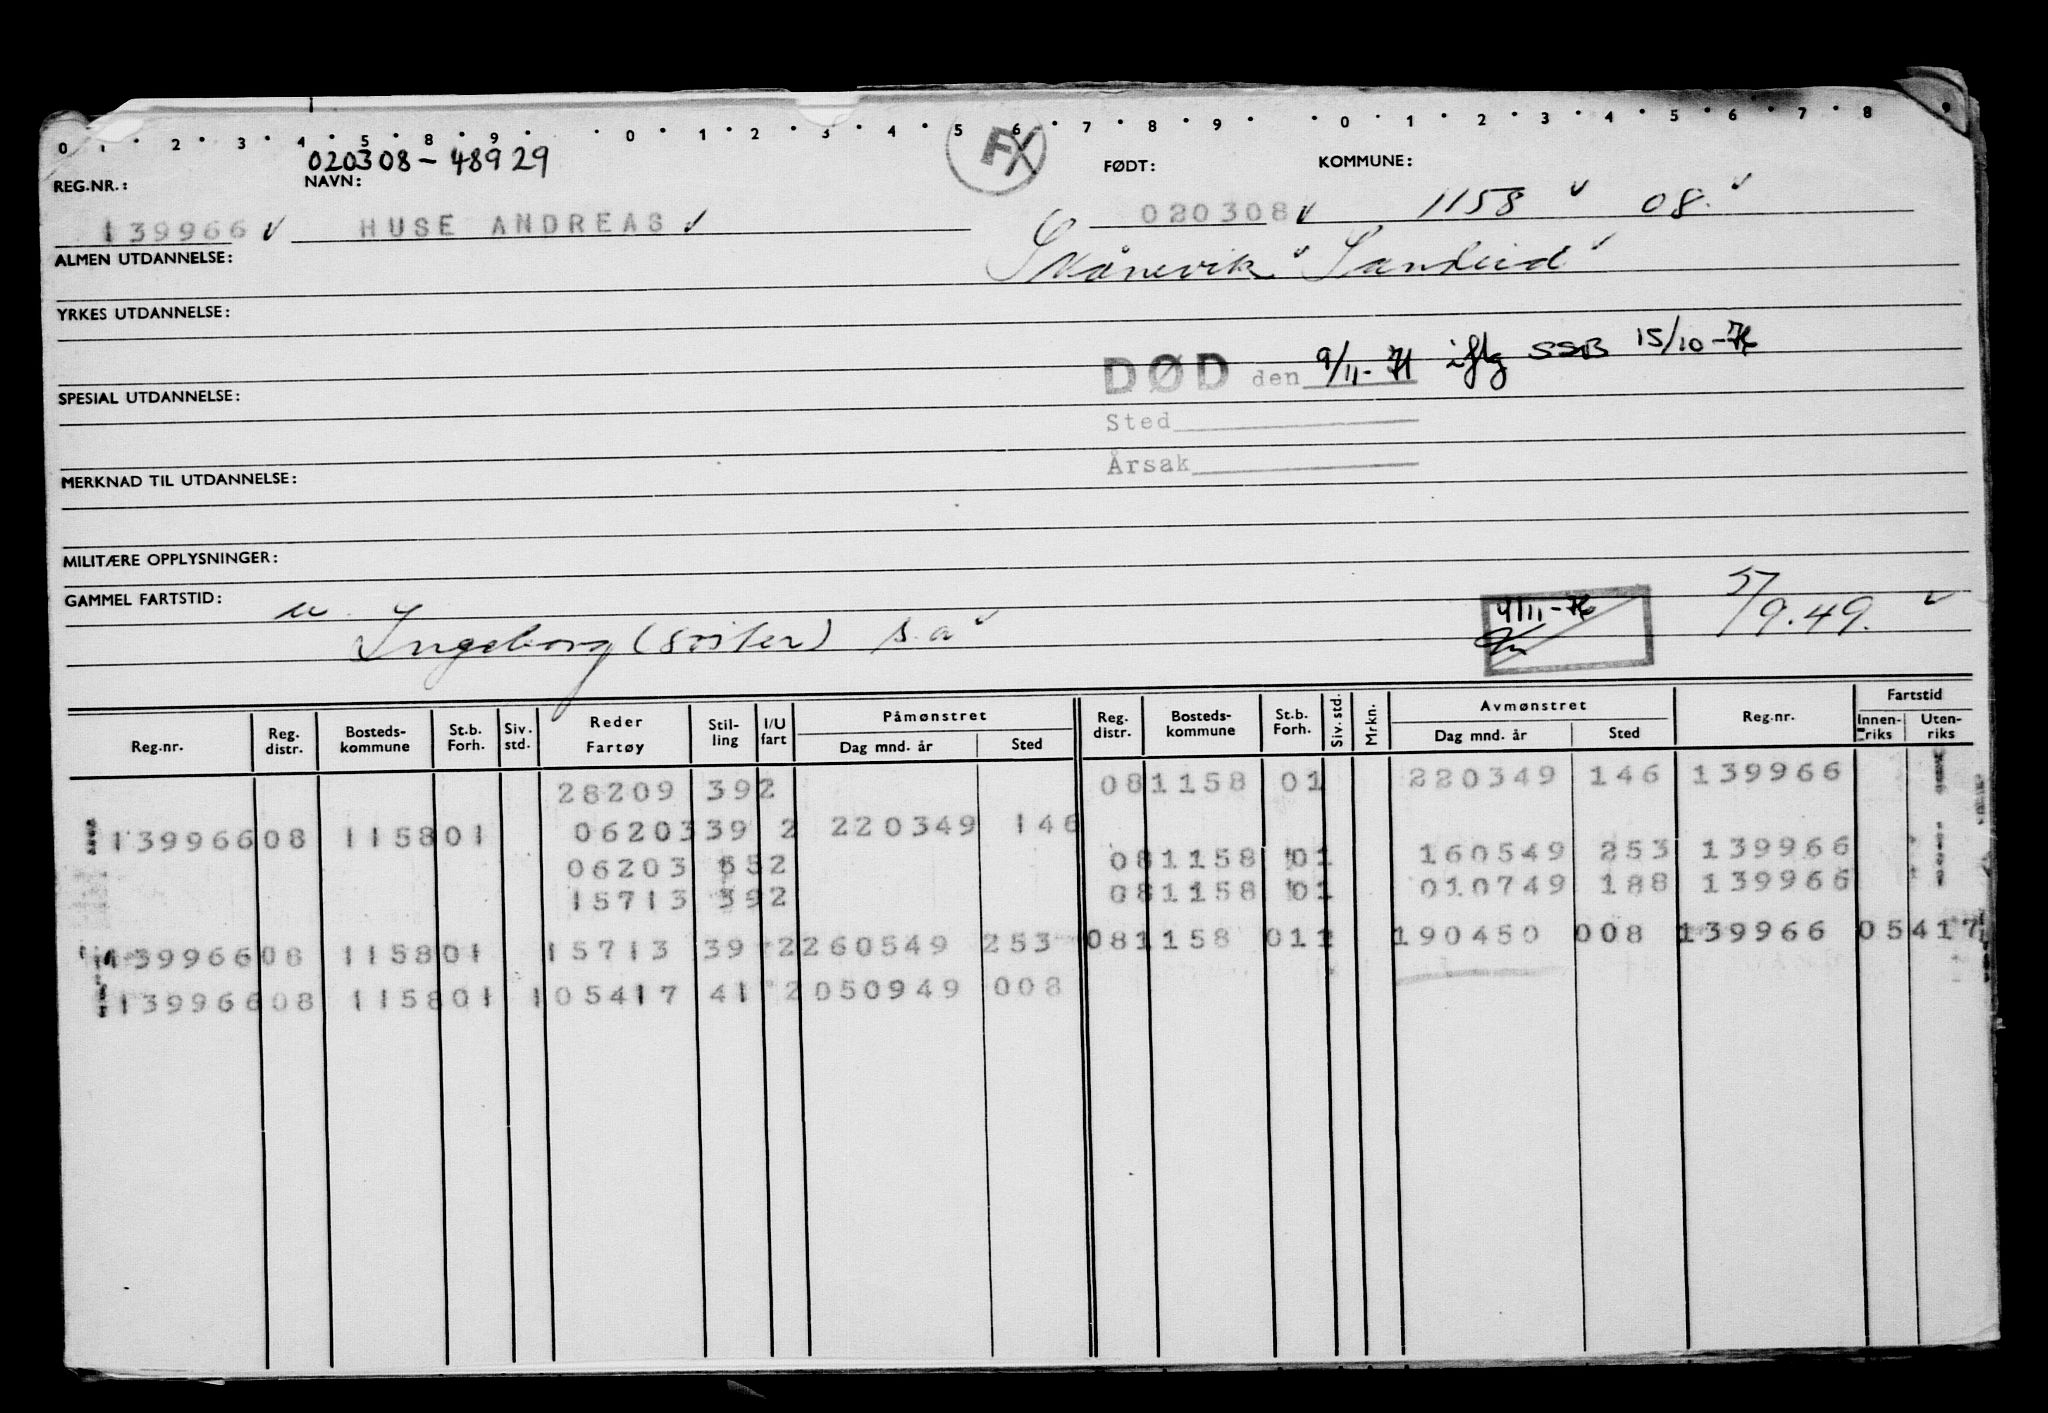 0 1 2 3 4 5 8 9 0 1 2 3 4 5 6 7 8 9 0 1 2 3 4 5 6 7 8 9
020308-48929 FX
REG.NR.: NAVN: FØDT: KOMMUNE:
139966 HUSE ANDREAS 020308 1158 08.
ALMEN UTDANNELSE: Skånevik Sandeid
YRKES UTDANNELSE:
DØD den 9/11-71 iflg SSB 15/10-76
SPESIAL UTDANNELSE:
Sted
Årsak
MERKNAD TIL UTDANNELSE:
MILITÆRE OPPLYSNINGER:
GAMMEL FARTSTID: 4/11-76 5/9.49.
u. Ingeborg (søster) s.a
Reg.nr. Reg. distr. Bosteds- kommune St.b. Forh. Siv. std. Reder Fartøy Stil- ling I/U fart Påmønstret Dag mnd. år Sted Reg. distr. Bosteds- kommune St.b. Forh. Siv. std. Mrkn. Avmønstret Dag mnd. år Sted Reg.nr. Fartstid Innen- riks Uten- riks
28209 392 081158 01 220349 146 139966
13996608 115801 0620339 2 220349 146
06203 552 081158 01 160549 253 139966
15713 392 081158 01 010749 188 139966
13996608 115801 15713 39 2260549 253 081158 011 190450 008 139966 05417
13996608 115801 105417 41 2050949 008